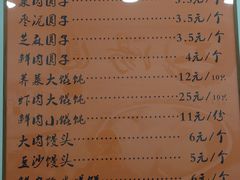 菜肉团子 3.5元/个
枣泥团子 3.5元/个
芝麻团子 3.5元/个
鲜肉团子 4元/个
荠菜大馄饨 12元/10只
虾肉大馄饨 25元/10只
鲜肉小馄饨 11元/份
大肉馒头 6元/个
豆沙馒头 5元/个
6元/个